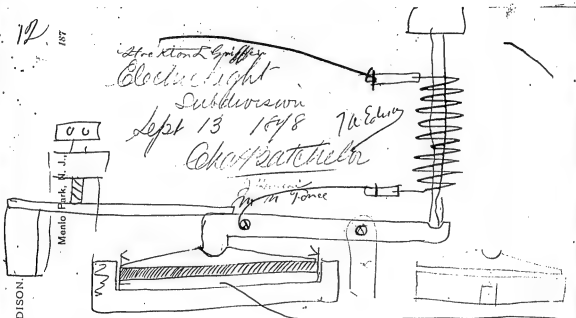 12
187
Stockton L Griffin
Electric Light
Subdivision
Sept 13 1878
T A Edison
Chas Batchelor
Menlo Park, N. J.,
DISON.